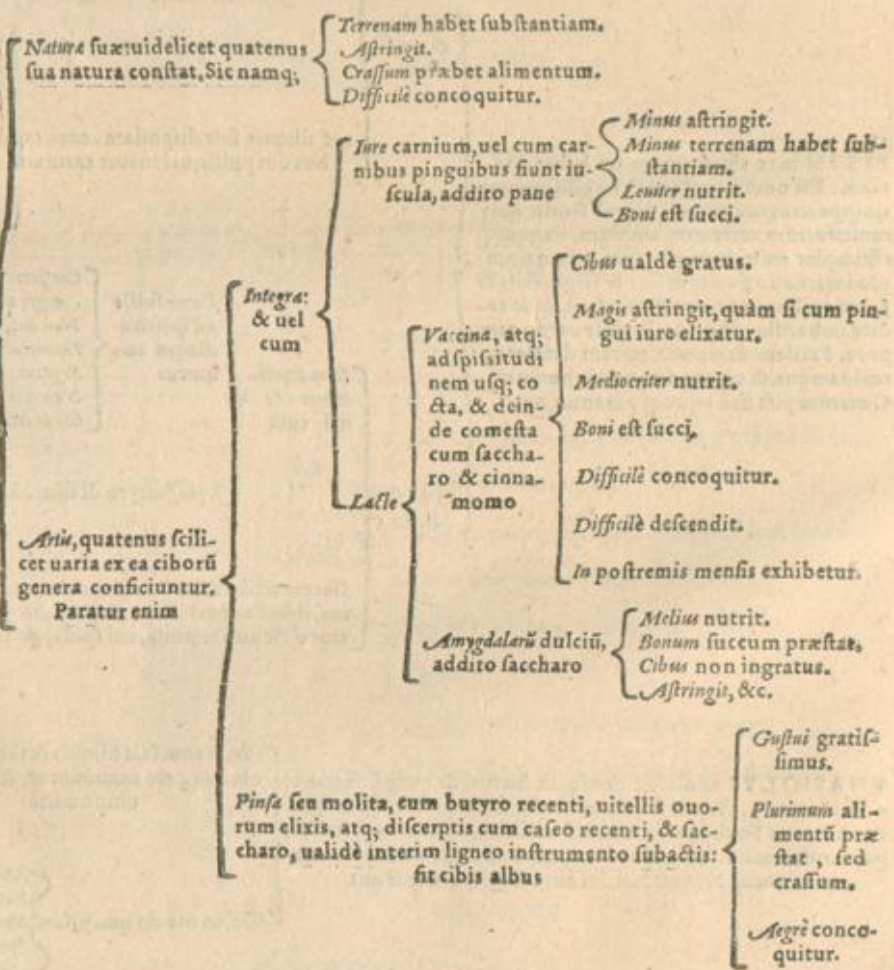 Naturæ suæ: uidelicet quatenus
sua natura constat. Sic namq;
Terrenam habet substantiam.
Astringit.
Crassum præbet alimentum.
Difficilè concoquitur.
Artis, quatenus scili-
cet uaria ex ea ciborũ
genera conficiuntur.
Paratur enim
Integra:
& uel
cum
Iure carnium, uel cum car-
nibus pinguibus fiunt iu-
scula, addito pane
Minus astringit.
Minus terrenam habet sub-
stantiam.
Leuiter nutrit.
Boni est succi.
Lacte
Vaccina, atq;
ad spissitudi
nem usq; co
cta, & dein-
de comesta
cum saccha-
ro & cinna-
momo
Cibus ualdè gratus.
Magis astringit, quàm si cum pin-
gui iure elixatur.
Mediocriter nutrit.
Boni est succi.
Difficilè concoquitur.
Difficilè descendit.
In postremis mensis exhibetur.
Amygdalarũ dulciũ,
addito saccharo
Melius nutrit.
Bonum succum præstat.
Cibus non ingratus.
Astringit, &c.
Pinsa seu molita, cum butyro recenti, uitellis ouo-
rum elixis, atq; discerptis cum caseo recenti, & sac-
charo, ualidè interim ligneo instrumento subactis:
fit cibis albus
Gustui gratis-
simus.
Plurimum ali-
mentũ præ
stat, sed
crassum.
Aegrè conco-
quitur.